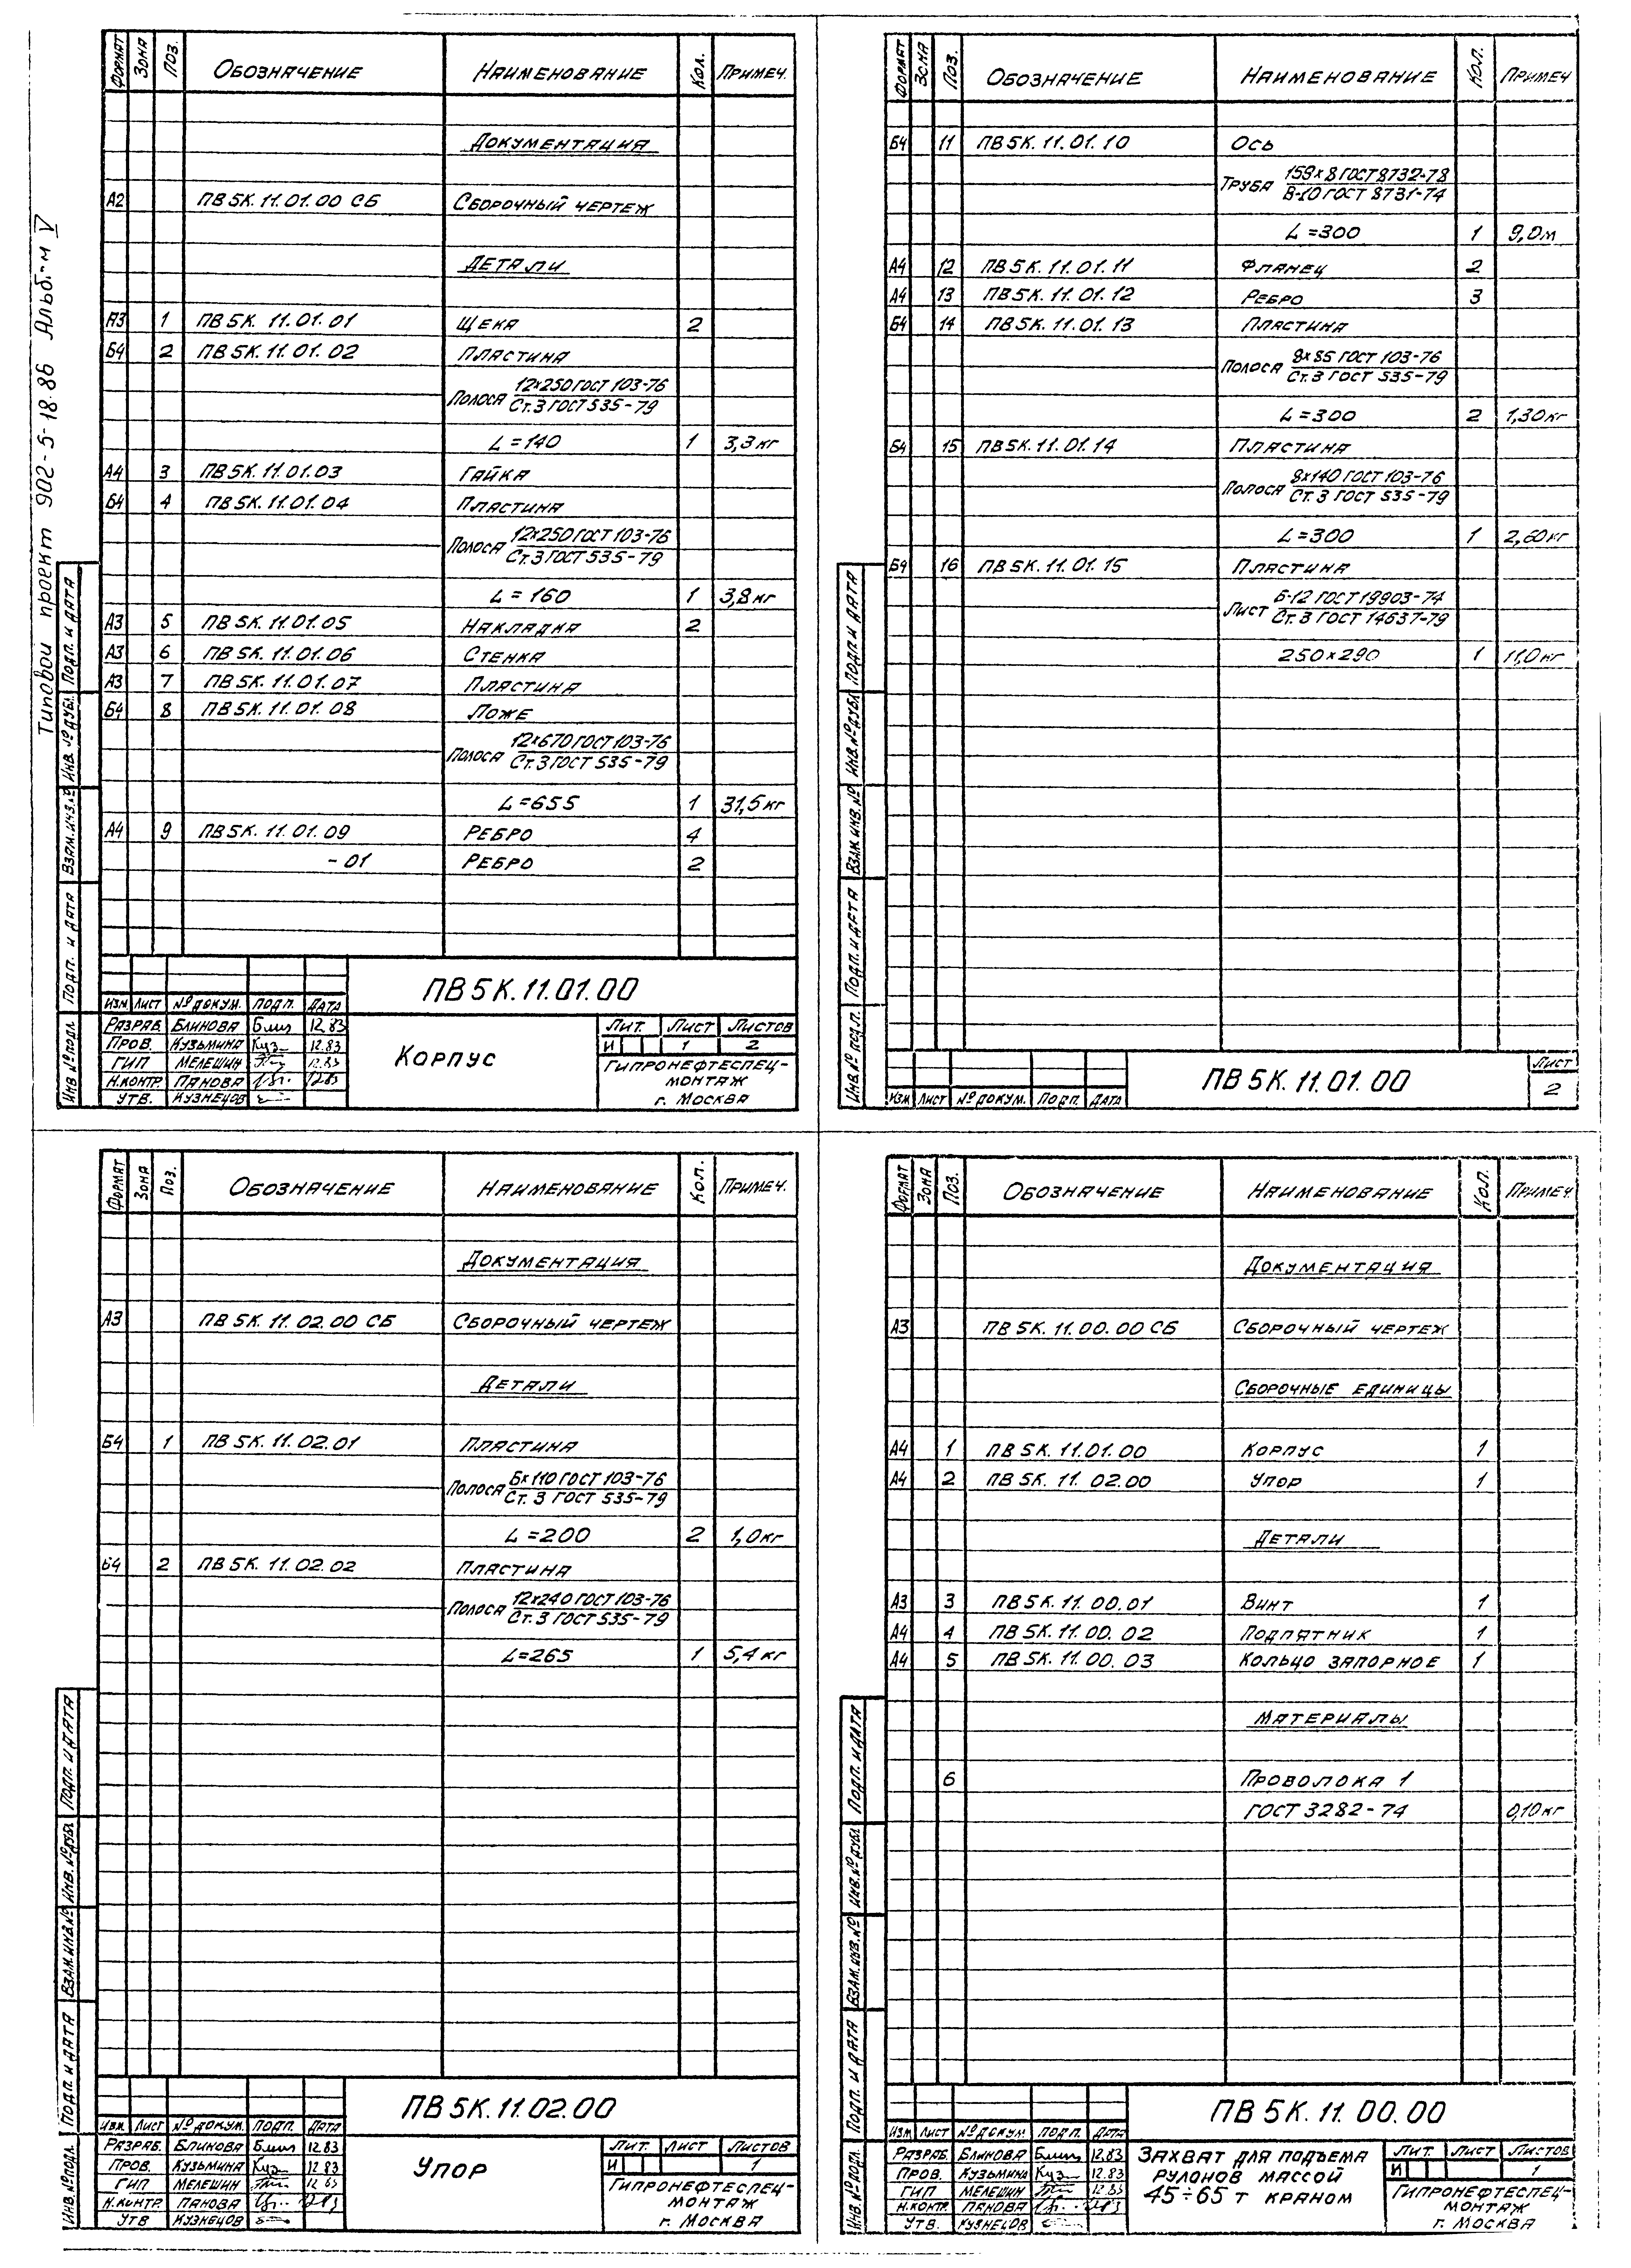 Типовой проект 902-5-18.86 Альбом V
Формат Зона Поз. Обозначение Наименование Кол. Примеч.
Документация
А2 ПВ5К.11.01.00 СБ Сборочный чертеж
Детали
А3 1 ПВ5К.11.01.01 Щека 2
Б4 2 ПВ5К.11.01.02 Пластина
Полоса 12х250 ГОСТ 103-76
Ст.3 ГОСТ 535-79
L=140 1 3,3кг
А4 3 ПВ5К.11.01.03 Гайка
Б4 4 ПВ5К.11.01.04 Пластина
Полоса 12х250 ГОСТ 103-76
Ст.3 ГОСТ 535-79
L=160 1 3,8кг
А3 5 ПВ5К.11.01.05 Накладка 2
А3 6 ПВ5К.11.01.06 Стенка
А3 7 ПВ5К.11.01.07 Пластина
Б4 8 ПВ5К.11.01.08 Ложе
Полоса 12х670 ГОСТ 103-76
Ст.3 ГОСТ 535-79
L=655 1 31,5кг
А4 9 ПВ5К.11.01.09 Ребро 4
-01 Ребро 2
Подп. и дата
Инв.№ дубл.
Взам.инв.№
Подп. и дата
Инв №подл.
ПВ5К.11.01.00
Изм Лист № докум. Подп. Дата
Разраб. Блинова 12.83
Пров. Кузьмина 12.83
ГИП Мелешин 12.83
Н.контр. Панова 12.83
Утв. Кузнецов
Корпус
Лит. Лист Листов
И 1 2
Гипронефтеспец-
монтаж
г. Москва
Формат Зона Поз. Обозначение Наименование Кол. Примеч
Б4 11 ПВ5К.11.01.10 Ось
Труба 159х8 ГОСТ 8732-78
В-10 ГОСТ 8731-74
L=300 1 9,0м
А4 12 ПВ5К.11.01.11 Фланец 2
А4 13 ПВ5К.11.01.12 Ребро 3
Б4 14 ПВ5К.11.01.13 Пластина
Полоса 8х85 ГОСТ 103-76
Ст.3 ГОСТ 535-79
L=300 2 1,30кг
Б4 15 ПВ5К.11.01.14 Пластина
Полоса 8х140 ГОСТ 103-76
Ст.3 ГОСТ 535-79
L=300 1 2,60кг
Б4 16 ПВ5К.11.01.15 Пластина
Лист Б-12 ГОСТ 19903-74
Ст.3 ГОСТ 14637-79
250х290 1 11,0кг
Подп и дата
Инв.№ дубл
Взам инв.№
Подп. и дата
Инв.№ подл.
Изм Лист № докум. Подп. Дата
ПВ5К.11.01.00
Лист
2
Формат Зона Поз. Обозначение Наименование Кол. Примеч.
Документация
А3 ПВ5К.11.02.00 СБ Сборочный чертеж
Детали
Б4 1 ПВ5К.11.02.01 Пластина
Полоса 6х110 ГОСТ 103-76
Ст.3 ГОСТ 535-79
L=200 2 1,0кг
Б4 2 ПВ5К.11.02.02 Пластина
Полоса 12х240 ГОСТ 103-76
Ст.3 ГОСТ 535-79
L=265 1 5,4кг
Подп. и дата
Инв.№ дубл
Взам.инв.№
Подп. и дата
Инв.№ подл.
ПВ5К.11.02.00
Изм. Лист № докум. Подп. Дата
Разраб. Блинова 12.83
Пров. Кузьмина 12.83
ГИП Мелешин 12 83
Н.контр. Панова 12.83
Утв Кузнецов
Упор
Лит. Лист Листов
И 1
Гипронефтеспец-
монтаж
г. Москва
Формат Зона Поз. Обозначение Наименование Кол. Примеч.
Документация
А3 ПВ5К.11.00.00 СБ Сборочный чертеж
Сборочные единицы
А4 1 ПВ5К.11.01.00 Корпус 1
А4 2 ПВ5К.11.02.00 Упор 1
Детали
А3 3 ПВ5К.11.00.01 Винт 1
А4 4 ПВ5К.11.00.02 Подпятник 1
А4 5 ПВ5К.11.00.03 Кольцо запорное 1
Материалы
6 Проволока 1
ГОСТ 3282-74 0,10кг
Подп. и дата
Инв.№ дубл
Взам.инв.№
Подп. и дата
Инв.№ подл.
ПВ5К.11.00.00
Изм Лист № докум. Подп. Дата
Разраб. Блинова 12.83
Пров. Кузьмина 12.83
ГИП Мелешин 12.83
Н.контр. Панова 12.83
Утв. Кузнецов
Захват для подъема
рулонов массой
45÷65 т краном
Лит. Лист Листов
И 1
Гипронефтеспец-
монтаж
г. Москва